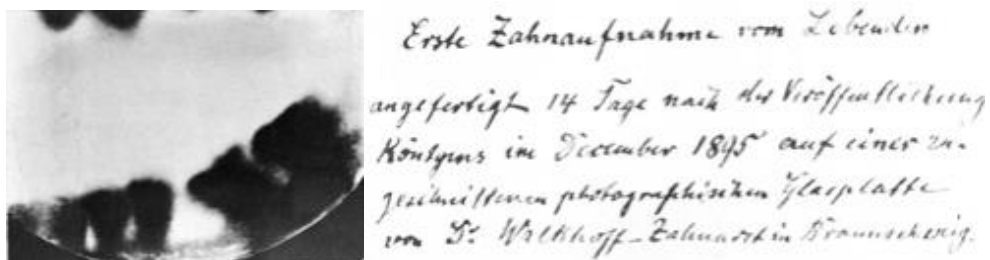 Erste Zahnaufnahme vom Lebenden
angefertigt 14 Tage nach der Veröffentlichung
Röntgens im December 1895 auf einer zu-
geschnittenen photographischen Glasplatte
von Dr. Walkhoff-Zahnarzt in Braunschweig.